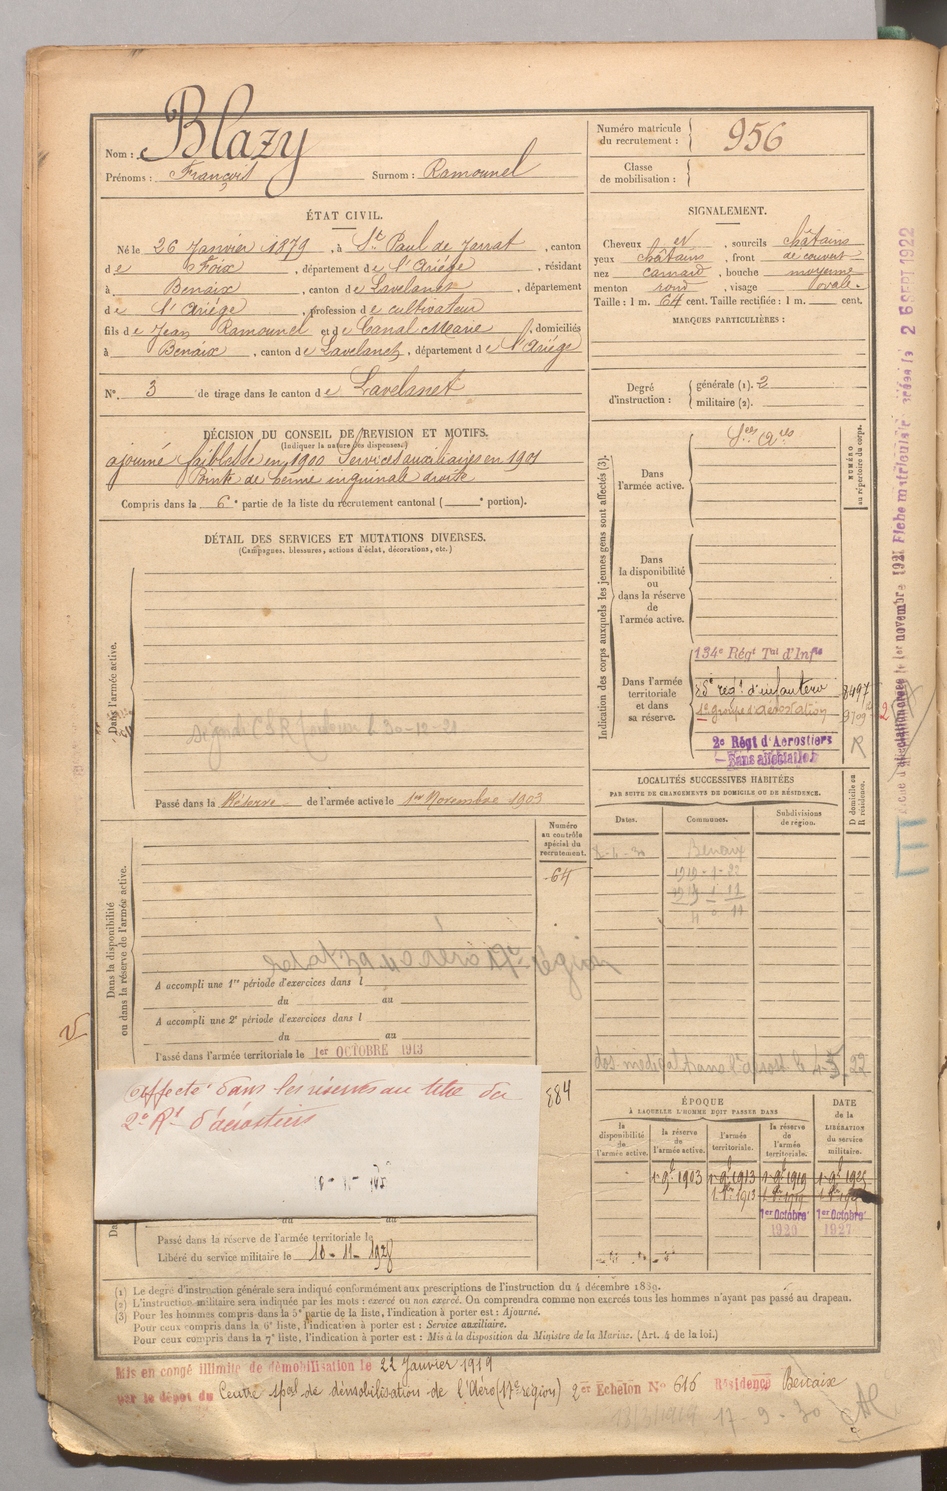 Nom : Blazy
Prénoms : François Surnom : Ramounel
Numéro matricule
du recrutement : 956
Classe
de mobilisation :
ÉTAT CIVIL.
Né le 26 Janvier 1879, à St Paul de Jarrat, canton
de Foix, département de l'Ariége, résidant
à Benaix, canton de Lavelanet, département
de l'Ariége, profession de cultivateur
fils de Jean Ramounel et de Canal Marie, domiciliés
à Benaix, canton de Lavelanet, département de l'Ariége
N° 3 de tirage dans le canton de Lavelanet
SIGNALEMENT.
Cheveux et, sourcils châtains
yeux châtains, front decouvert
nez camard, bouche moyenne
menton rond, visage ovale.
Taille : 1 m. 64 cent. Taille rectifiée : 1 m. cent.
MARQUES PARTICULIÈRES :
Degré
d'instruction :
générale (1). 2
militaire (2).
DÉCISION DU CONSEIL DE REVISION ET MOTIFS.
(Indiquer la nature des dispenses.)
ajourné faiblesse en 1900 Services auxiliaires en 1901
Pointe de hernie inguinale droite
Compris dans la 6e partie de la liste du recrutement cantonal ( e portion).
DÉTAIL DES SERVICES ET MUTATIONS DIVERSES.
(Campagnes, blessures, actions d'éclat, décorations, etc.)
Dans l'armée active.
30-12-21
Passé dans la Réserve de l'armée active le 1er Novembre 1903
Indication des corps auxquels les jeunes gens sont affectés (3).
NUMÉRO
au répertoire du corps.
Dans
l'armée active.
Dans
la disponibilité
ou
dans la réserve
de
l'armée active.
Dans l'armée
territoriale
et dans
sa réserve.
134e Régt Tal d'Infie
régt d'infanterie 8497
1er groupe d'aérostation
2e Régt d'Aerostiers
Sans affectation
R
LOCALITÉS SUCCESSIVES HABITÉES
PAR SUITE DE CHANGEMENTS DE DOMICILE OU DE RÉSIDENCE.
D domicile ou
R résidence.
Dates. Communes. Subdivisions
de région.
Benaix
Dans la disponibilité
ou dans la réserve de l'armée active.
Numéro
au contrôle
spécial du
recrutement.
64
région
A accompli une 1re période d'exercices dans l
du au
A accompli une 2e période d'exercices dans l
du au
Passé dans l'armée territoriale le 1er OCTOBRE 1913
affecté dans les réserves au titre du
2e Rt d'aérostiers
884
Passé dans la réserve de l'armée territoriale le
Libéré du service militaire le 10-11-1928
ÉPOQUE
À LAQUELLE L'HOMME DOIT PASSER DANS
DATE
de la
LIBÉRATION
du service
militaire.
la
disponibilité
de
l'armée active.
la réserve
de
l'armée active.
l'armée
territoriale.
la réserve
de
l'armée
territoriale.
1903 1913 1919
1913
1er Octobre 1er Octobre
1920 1927
(1) Le degré d'instruction générale sera indiqué conformément aux prescriptions de l'instruction du 4 décembre 1889.
(2) L'instruction militaire sera indiquée par les mots : exercé ou non exercé. On comprendra comme non exercés tous les hommes n'ayant pas passé au drapeau.
(3) Pour les hommes compris dans la 5e partie de la liste, l'indication à porter est : Ajourné.
Pour ceux compris dans la 6e liste, l'indication à porter est : Service auxiliaire.
Pour ceux compris dans la 7e liste, l'indication à porter est : Mis à la disposition du Ministre de la Marine. (Art. 4 de la loi.)
Mis en congé illimité de démobilisation le 22 Janvier 1919
par le dépot du Centre spal de démobilisation de l'Aéro (17e région) 2er Echelon N° 616 Résidence Benaix
17-9-30
novembre 1921 Fiche matricule créée le 26 SEPT 1922